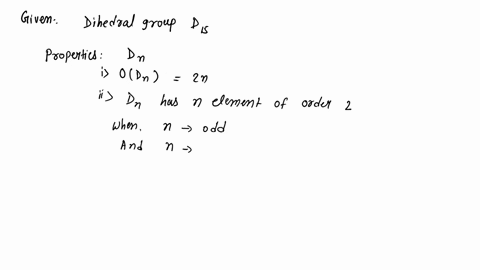 Given:. Dihedral group D15
Properties: Dn
i> O(Dn) = 2n
ii> Dn has n element of order 2
When. n → odd
And n →